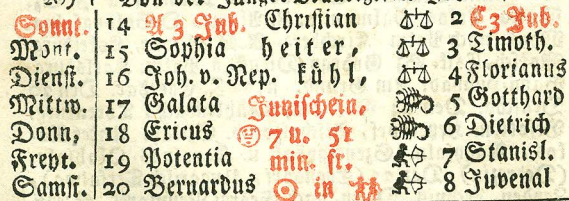 Sonnt. 14 A 3 Jub. Christian 2 C 3 Jub.
Mont. 15 Sophia heiter, 3 Timoth.
Dienst. 16 Joh. v. Nep. kühl, 4 Florianus
Mittw. 17 Galata Junischein, 5 Gotthard
Donn, 18 Ericus 7 u. 51 6 Dietrich
Freyt. 19 Potentia min. fr. 7 Stanisl.
Samst. 20 Bernardus ☉ in 8 Juvenal